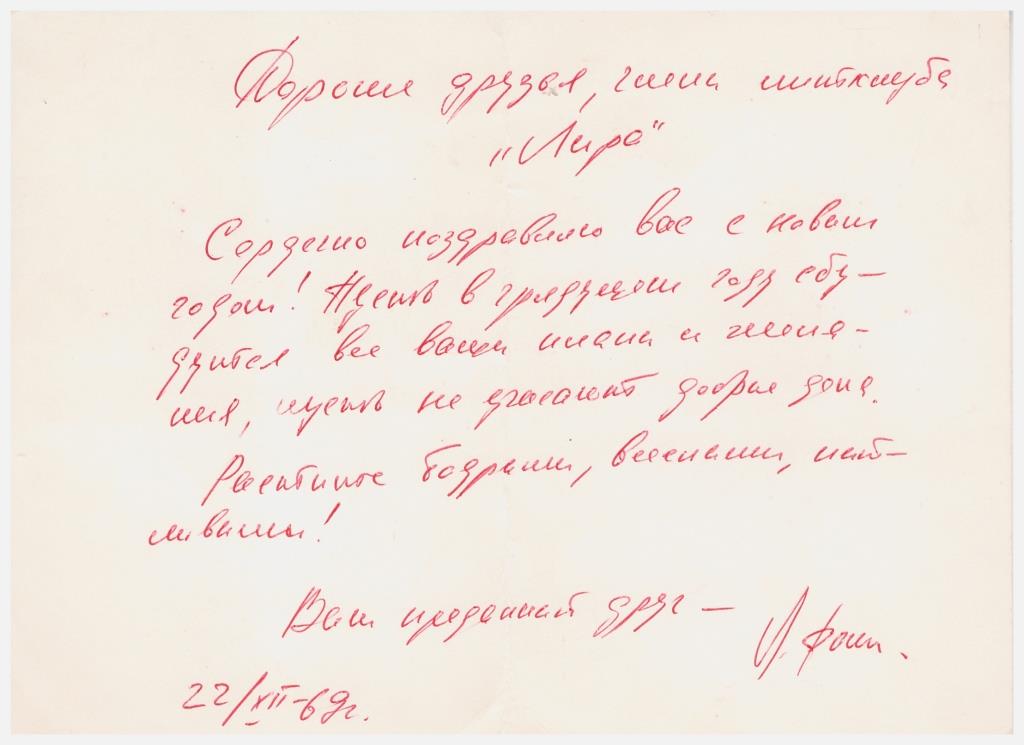 Дорогие друзья, члены литклуба
"Лира"
Сердечно поздравляю вас с новым
годом! Пусть в грядущем году сбу-
дутся все ваши планы и жела-
ния, пусть не угасают добрые дела.
Растите бодрыми, веселыми,
Ваш преданный друг –
22/XII-69г.